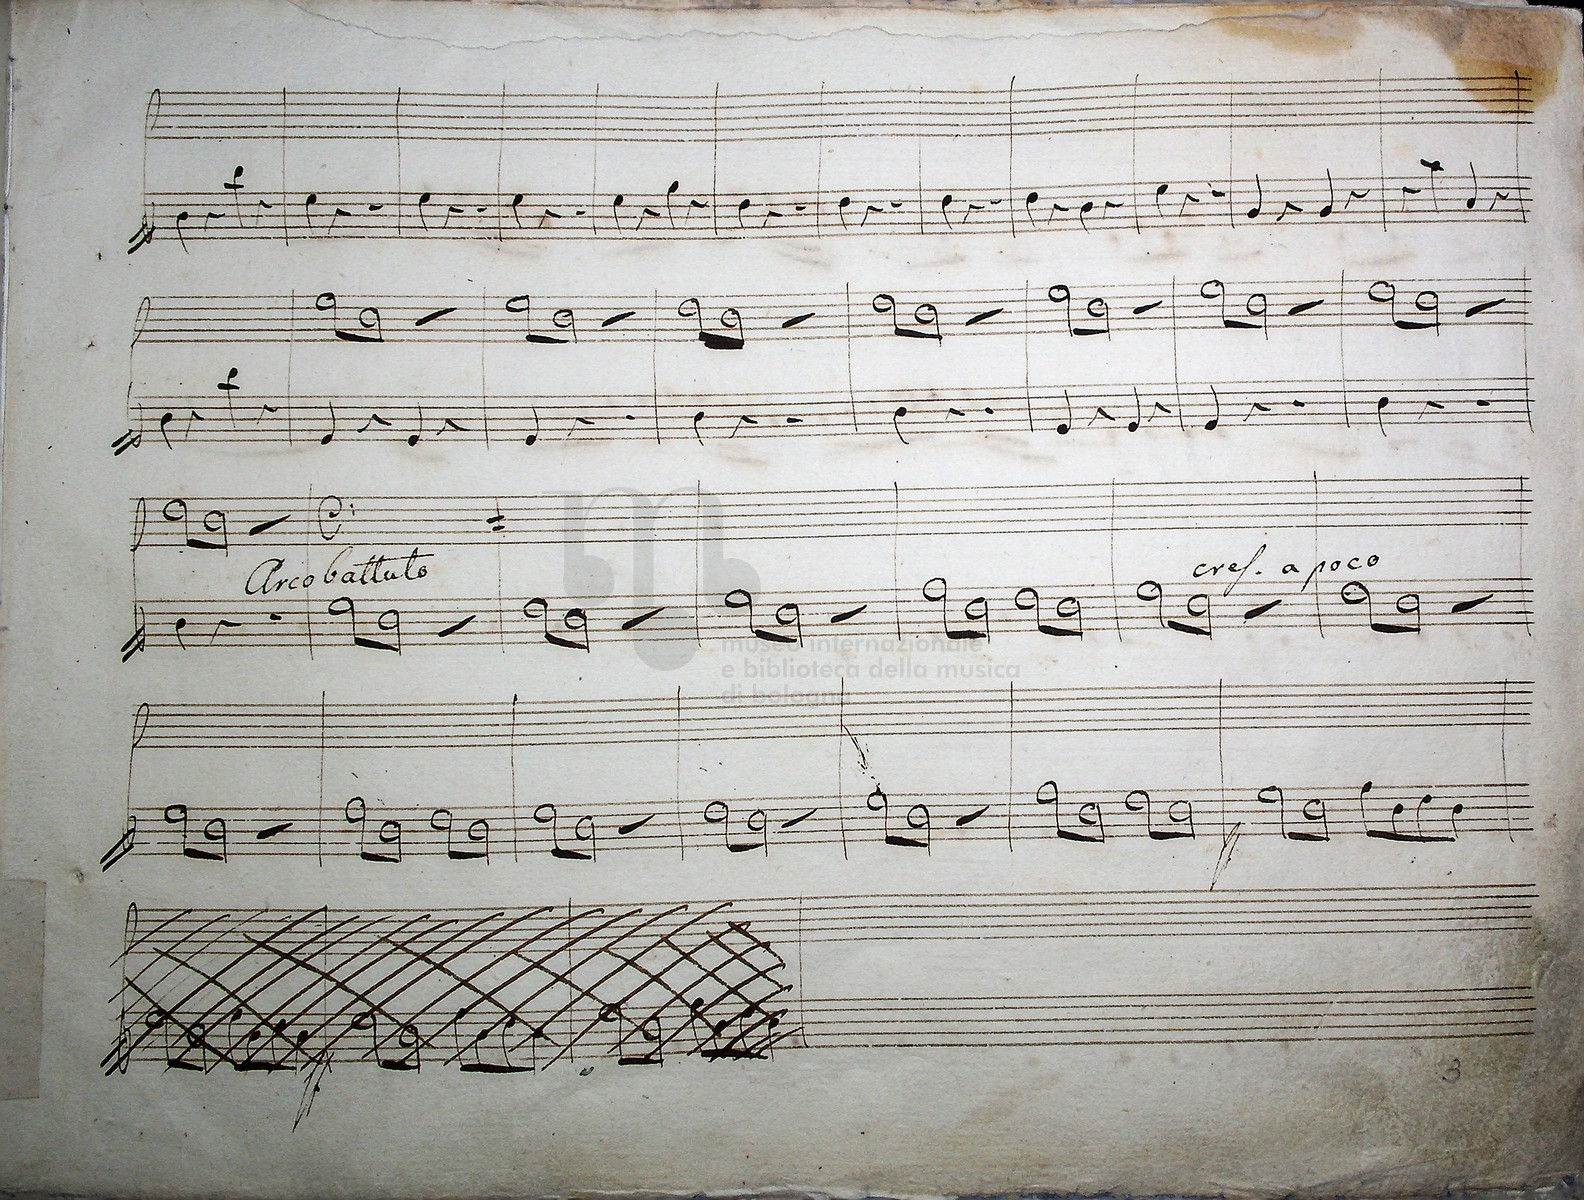 Arco battuto
cres. a poco
museo internazionale
e biblioteca della musica
di bologna
3